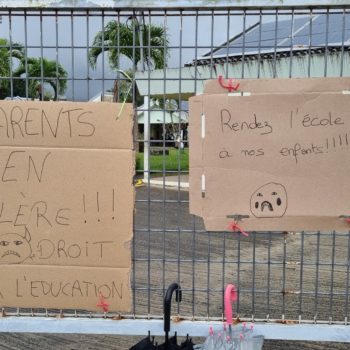 PARENTS
EN
COLÈRE!!!
DROIT
À L'EDUCATION
Rendez l'école
à nos enfants!!!!!